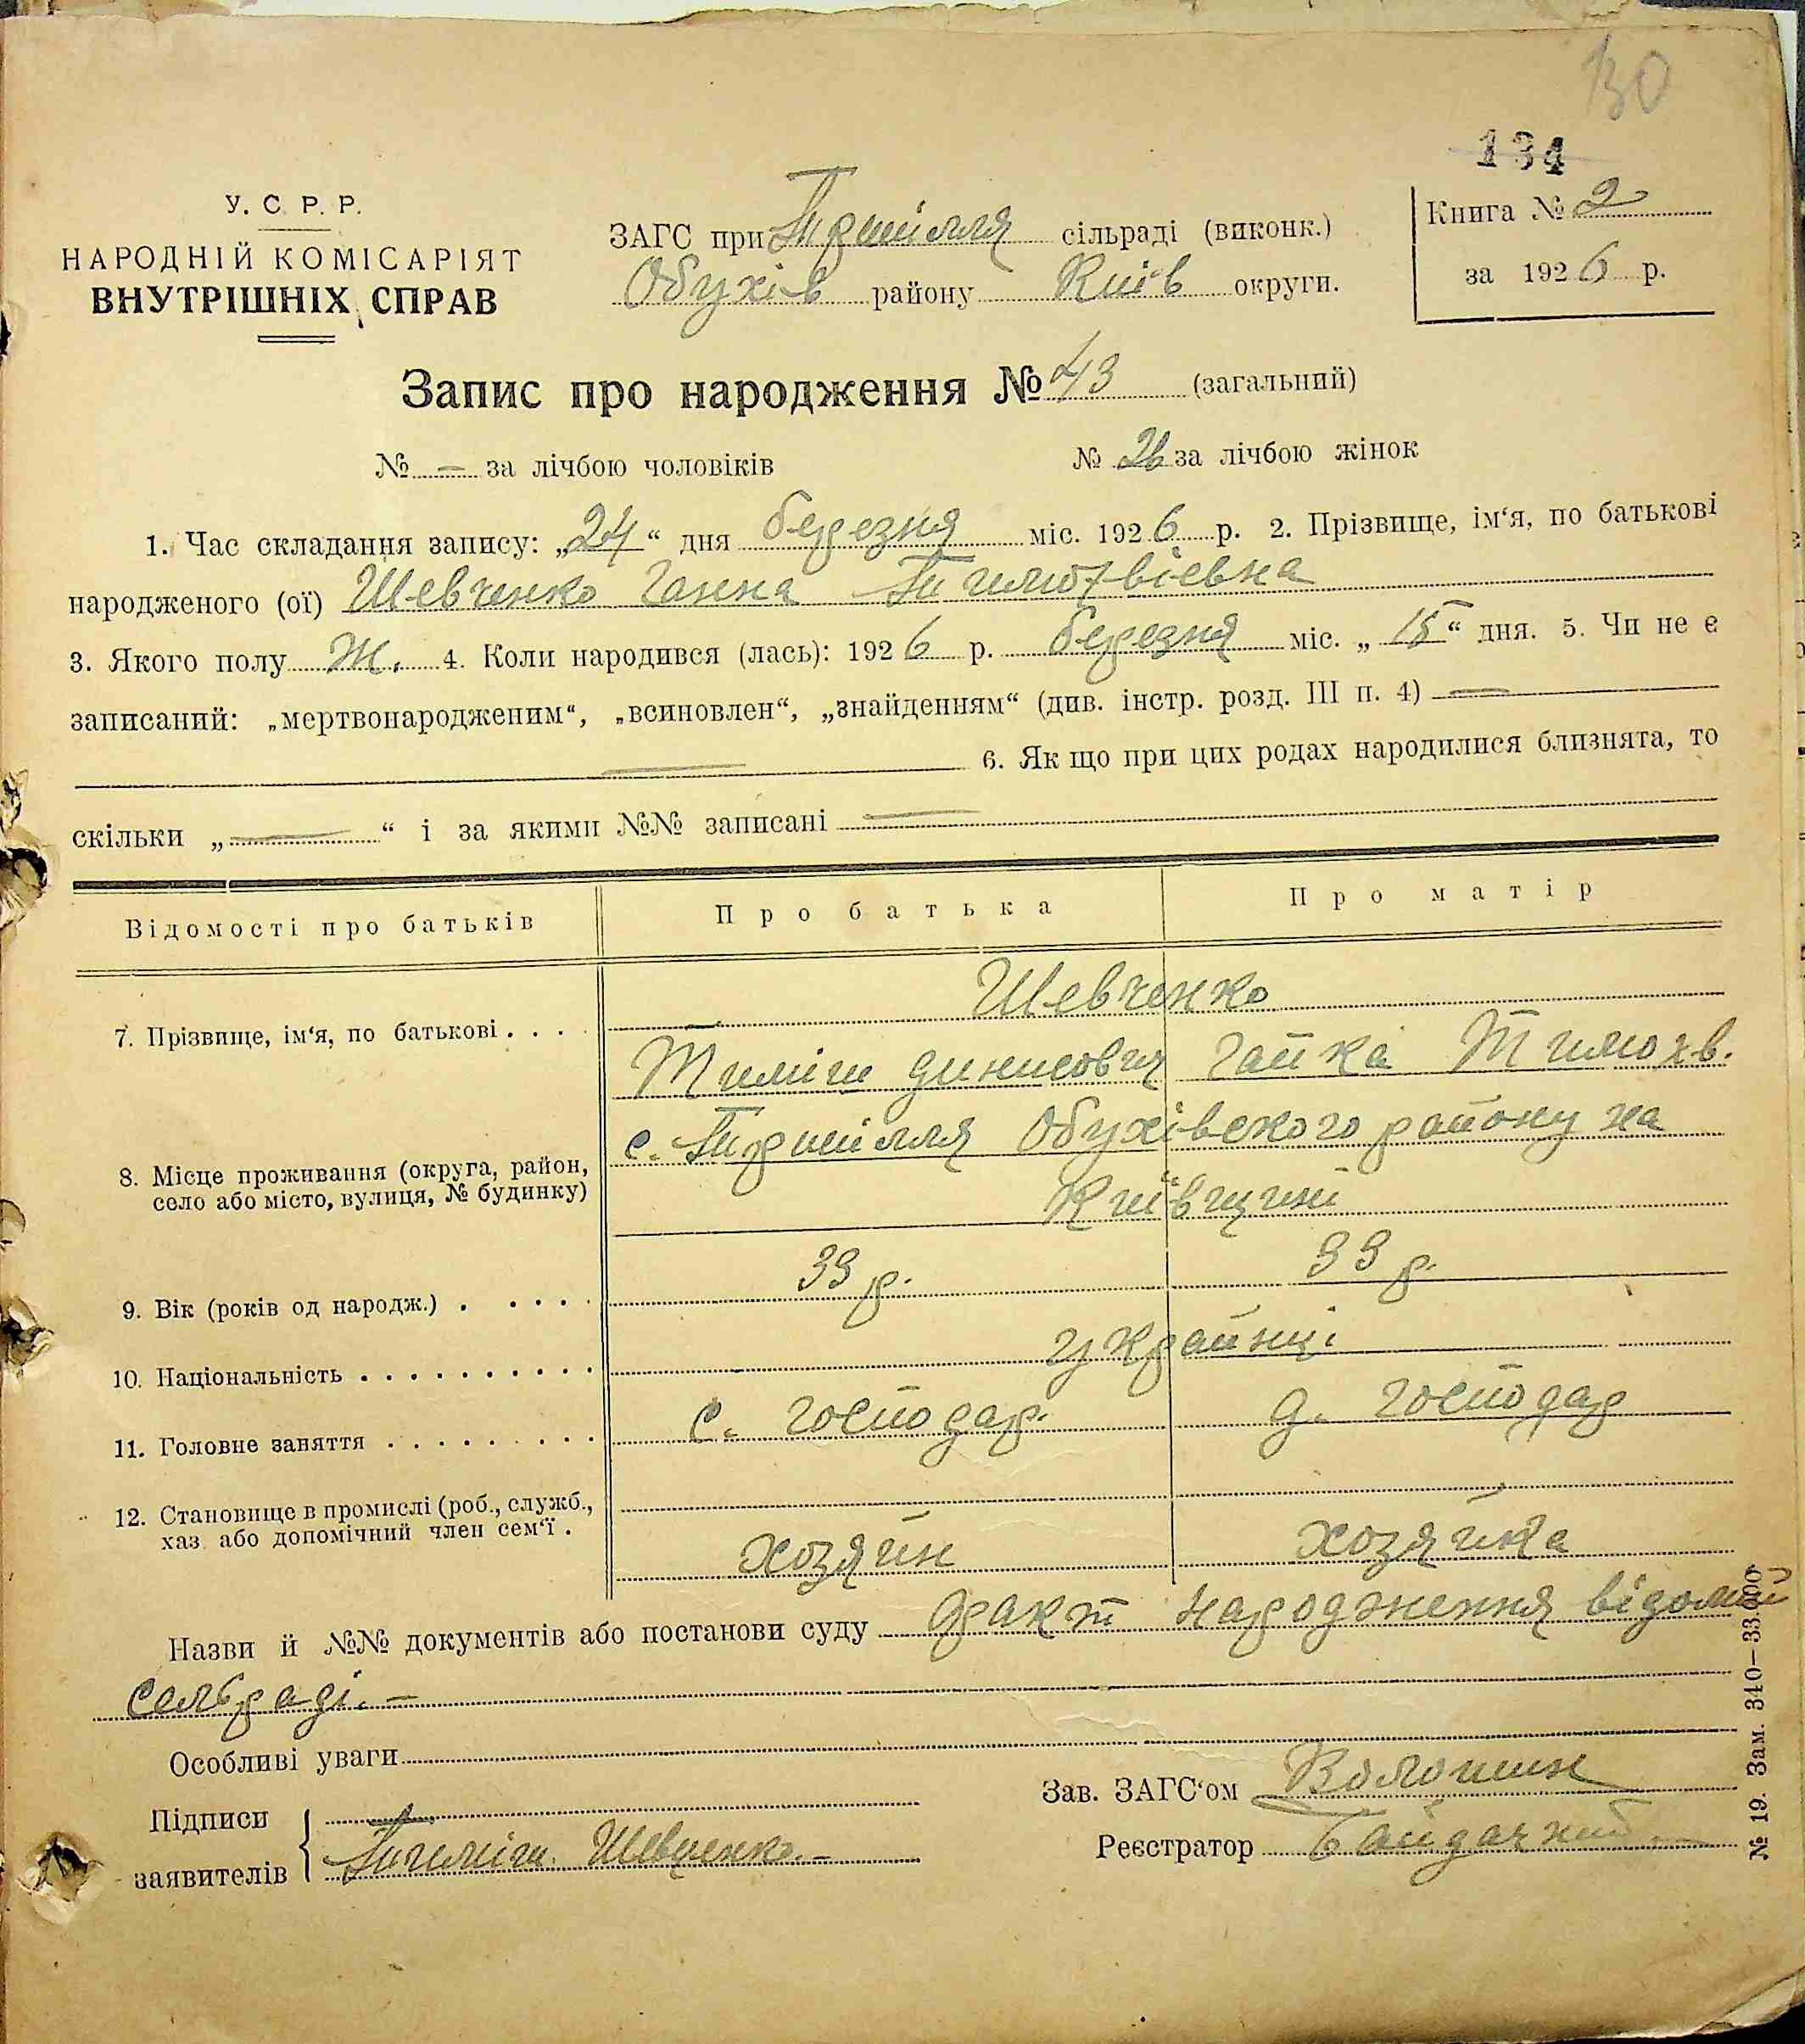 130
134
У. С. Р. Р.
НАРОДНІЙ КОМІСАРІЯТ
ВНУТРІШНІХ СПРАВ
ЗАГС при Трипілля сільраді (виконк.)
Обухів району Київ округи.
Книга № 2
за 1926 р.
Запис про народження № 43 (загальний)
№ — за лічбою чоловіків № 26 за лічбою жінок
1. Час складання запису: „24“ дня березня міс. 1926 р. 2. Прізвище, ім‘я, по батькові
народженого (ої) Шевченко Ганна Тимохвіевна
3. Якого полу ж. 4. Коли народився (лась): 1926 р. березня міс. „15“ дня. 5. Чи не є
записаний: „мертвонародженим“, „всиновлен“, „знайденням“ (див. інстр. розд. III п. 4) —
— 6. Як що при цих родах народилися близнята, то
скільки „—“ і за якими №№ записані —
Відомості про батьків Про батька Про матір
Шевченко
7. Прізвище, ім‘я, по батькові . . . .
Тиміш Динисович Гапка Тимохв.
с. Трипілля Обухівского району на
8. Місце проживання (округа, район,
село або місто, вулиця, № будинку)
Київщині
9. Вік (років од народж.) . . . . . 33 р. 33 р.
10. Національність . . . . . . . . . . українці
11. Головне заняття . . . . . . . . . с. господар. д. господар
12. Становище в промислі (роб., служб.,
хаз. або допомічний член сем‘ї . хозяїн хозяїка
Назви й №№ документів або постанови суду факт народження відомий
сельраді. —
Особливі уваги
Зав. ЗАГС‘ом Волошин
Підписи
заявителів Тиміш Шевченко. —
Реєстратор Гайдачний
№ 19. Зам. 340—33.000